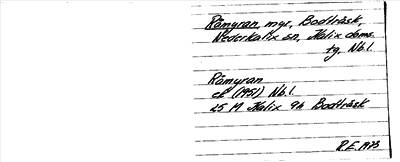 Råmyran myr, Bodträsk,
Nederkalix sn, Kalix doms.
tg. Nb.l.
Råmyran
ek (1951) Nb.l.
25 M Kalix 9h Bodträsk
R.E. 1973